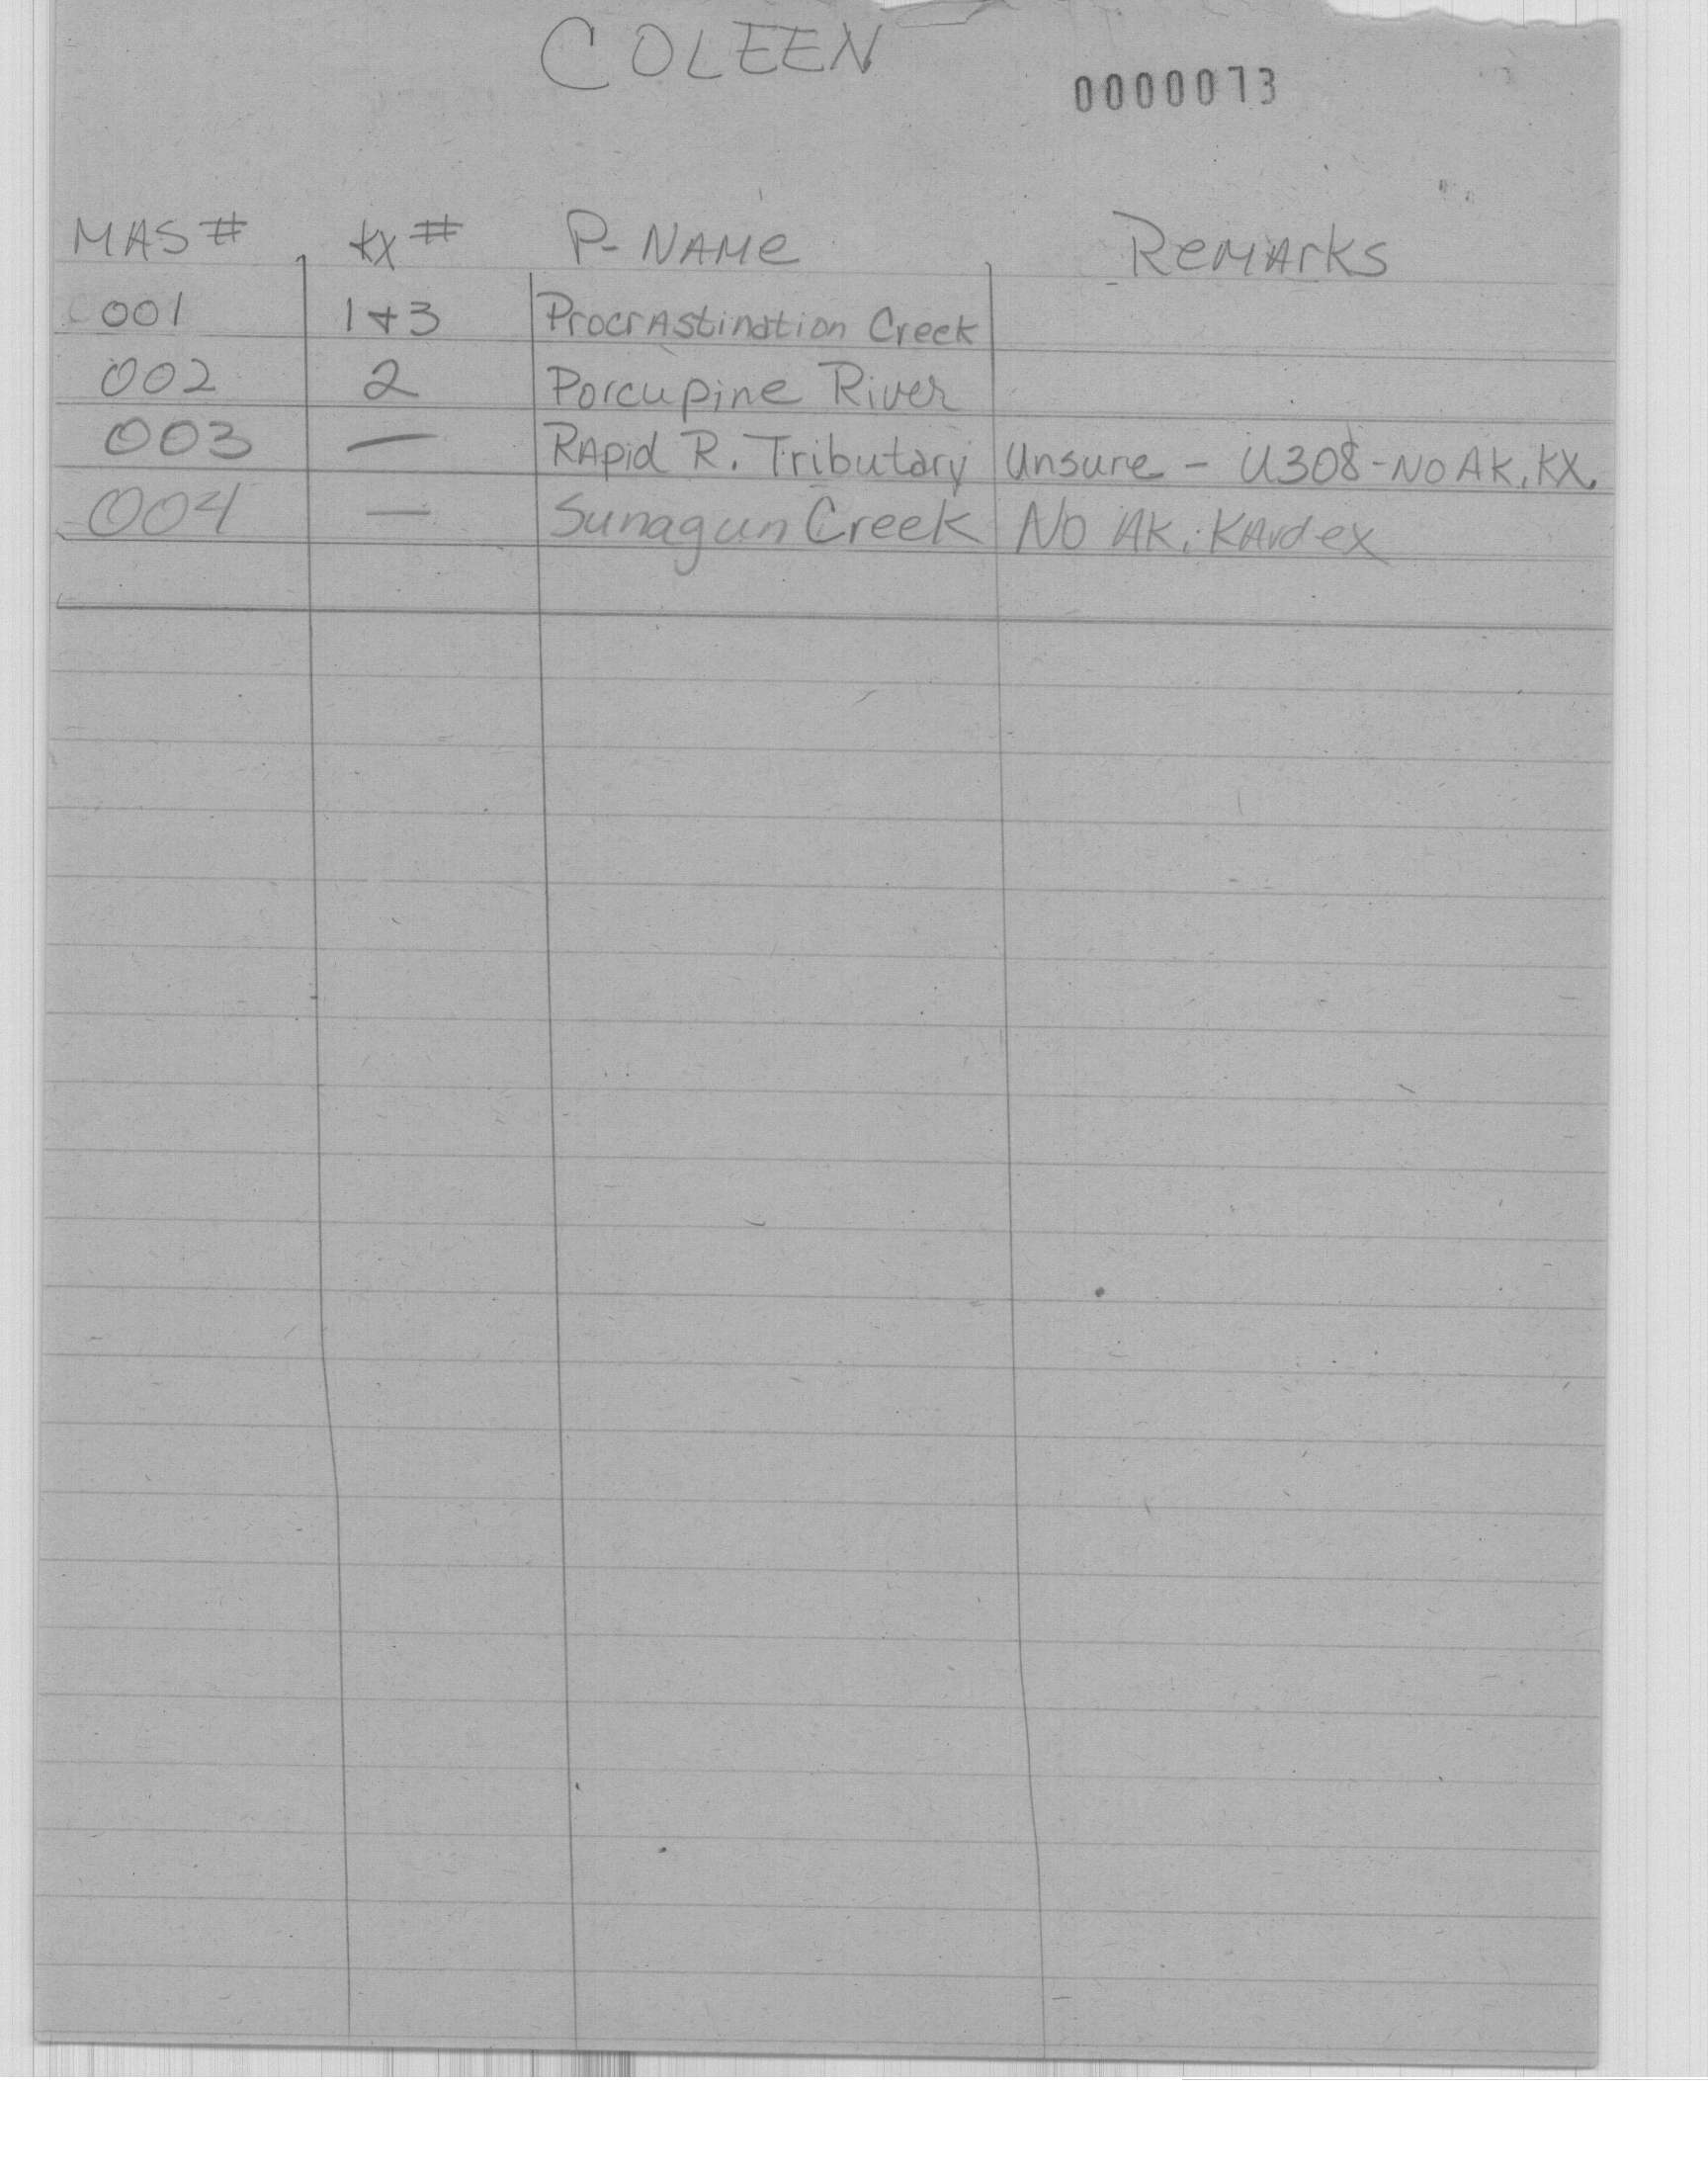 COLEEN
0000073
MAS # KX # P-NAMe ReMArks
001 1+3 ProcrAstination Creek
002 2 Porcupine River
003 — RApid R. Tributary Unsure - U308 - No AK. KX.
004 — Sunagun Creek No AK. KArdex